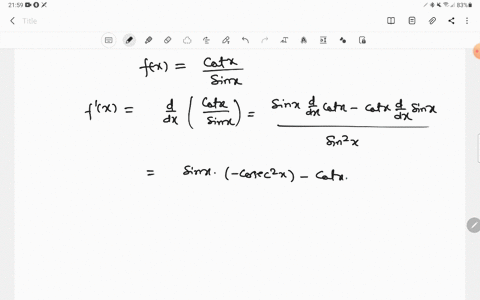 21:59
83%
Title
f(x) = cotx / sinx
f'(x) = d/dx ( cotx / sinx ) = sinx d/dx cotx - cotx d/dx sinx / sin²x
= sinx. (-cosec²x) - cotx.